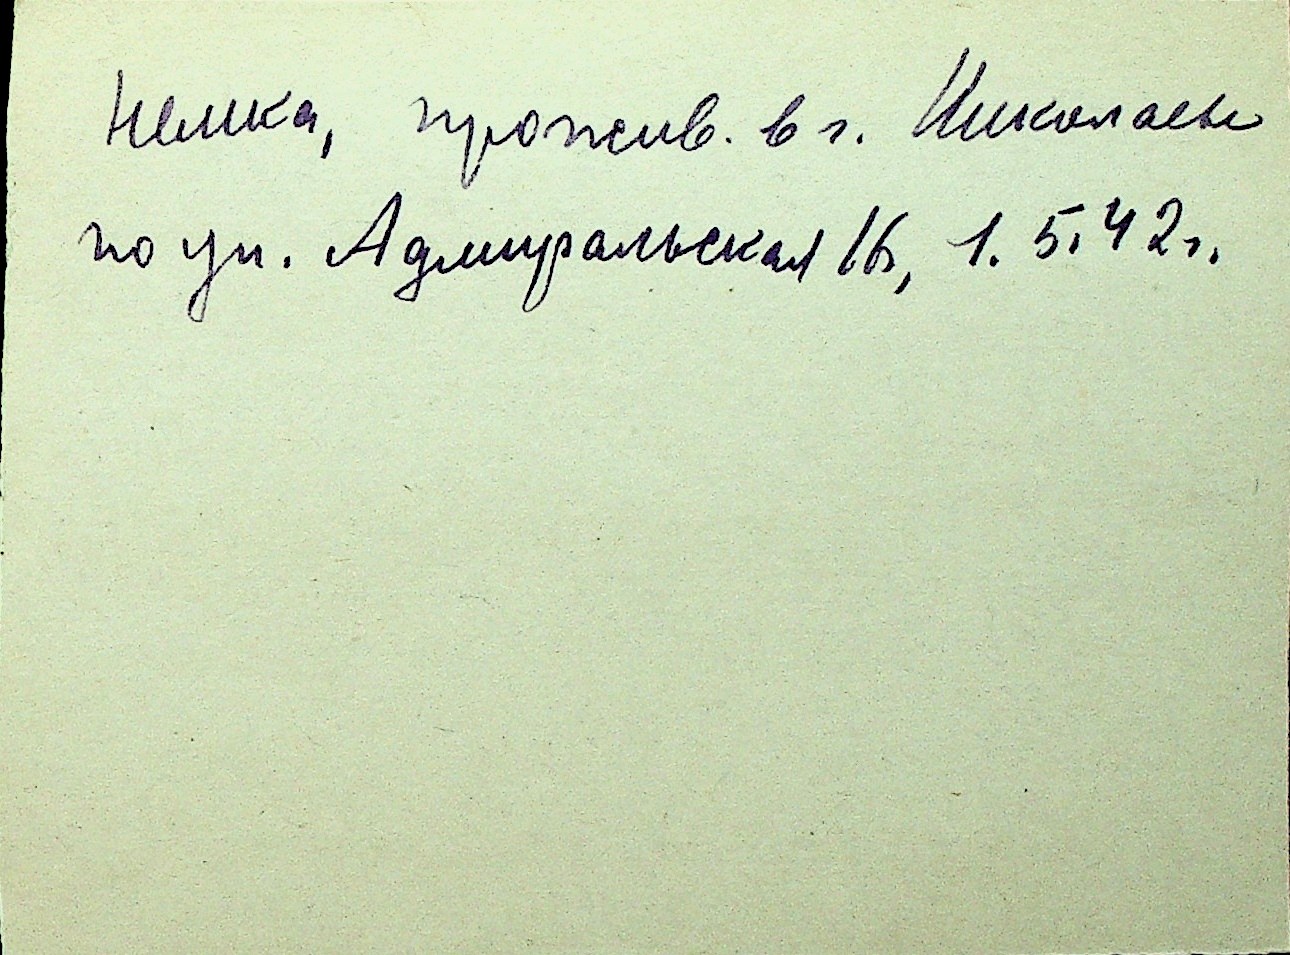 немка, прожив. в г. Николаеве
по ул. Адмиральская 16, 1.5.42г.